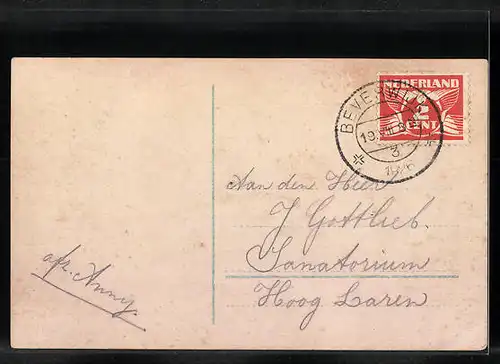 NEDERLAND
2
CENT
BEVERWIJK
3
Aan den Heer
J Gottlieb.
Sanatorium
Hoog Laren
afz. Anny.